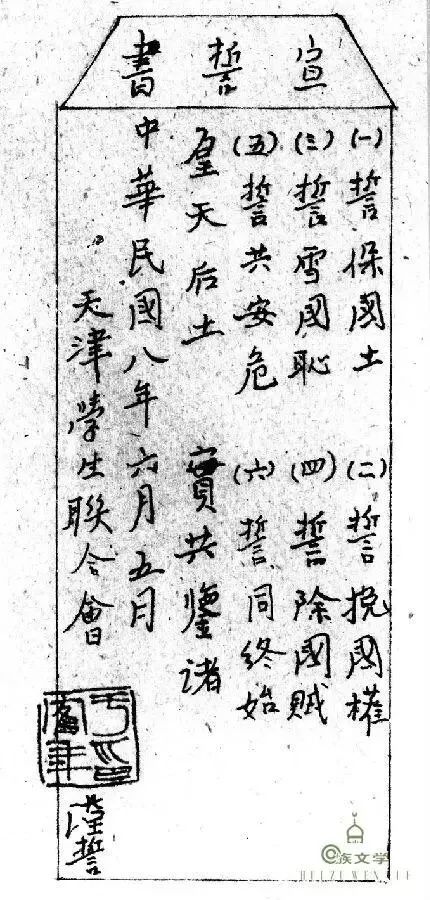 宣誓書
(一)誓保國土 (二)誓挽國權
(三)誓雪國恥 (四)誓除國賊
(五)誓共安危 (六)誓同終始
皇天后土 實共鑒諸
中華民國八年六月五日
天津學生聯合會
謹誓
族文学
HUIZUWENXUE